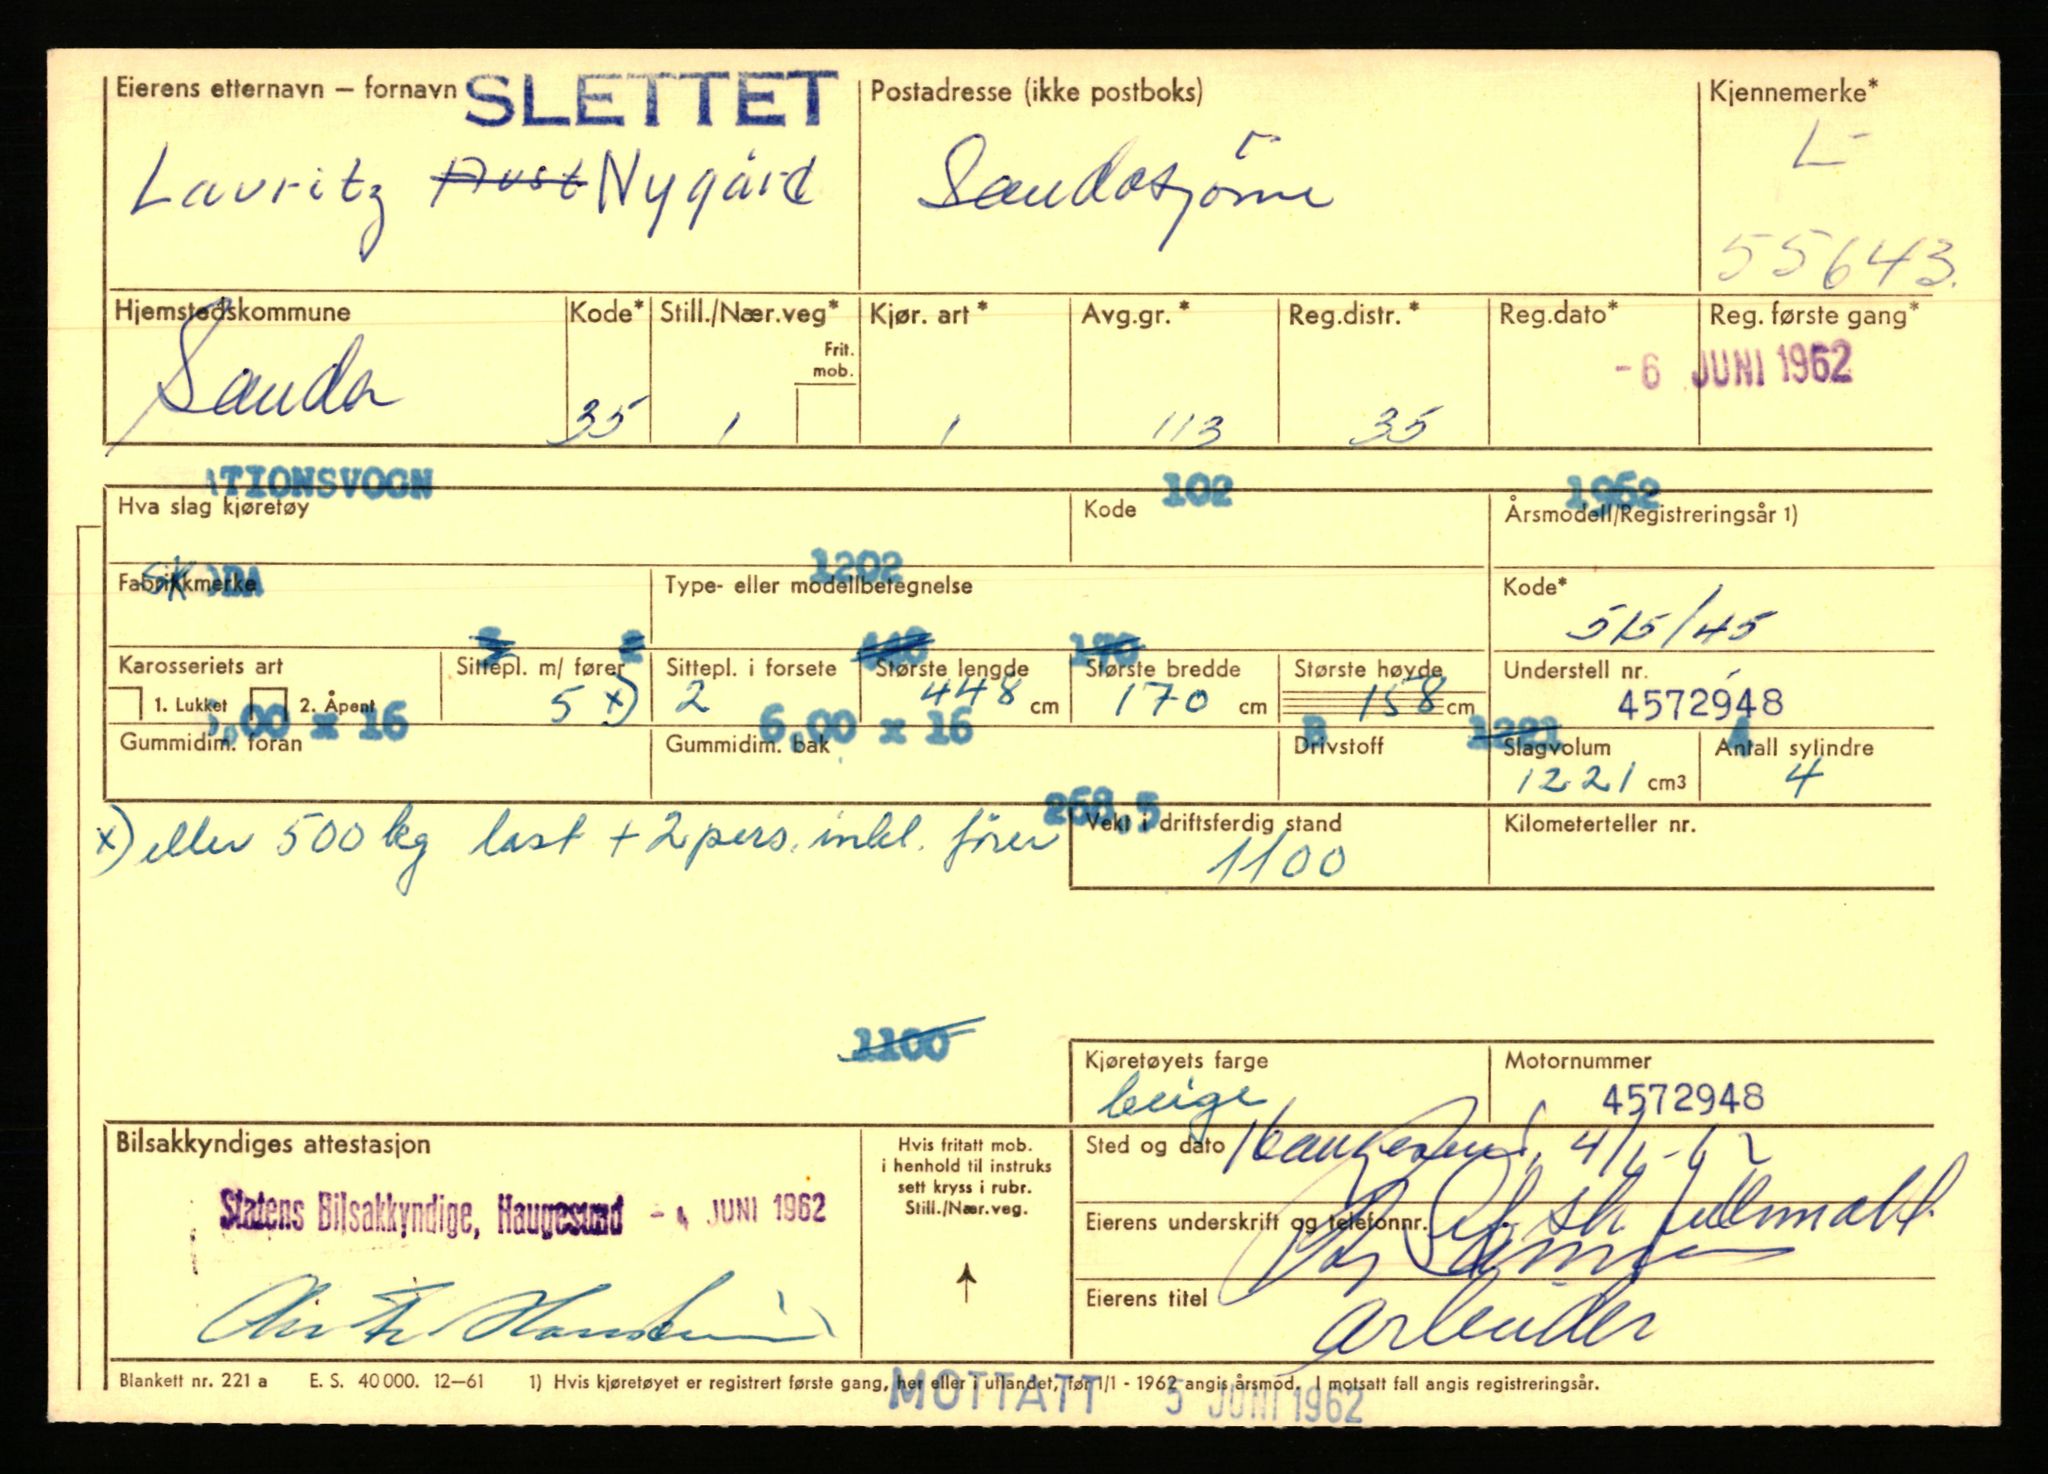 Eierens etternavn – fornavn SLETTET Postadresse (ikke postboks) Kjennemerke*
Lauritz Aust Nygård Saudasjøen L-
55643.
Hjemstedskommune Kode* Still./Nær.veg* Kjør. art* Avg.gr.* Reg.distr.* Reg.dato* Reg. første gang*
Frit.
mob.
-6 JUNI 1962
Sauda 35 1 1 113 35
ATIONSVOGN 102 1962
Hva slag kjøretøy Kode Årsmodell/Registreringsår 1)
SKODA 1202
Fabrikkmerke Type- eller modellbetegnelse Kode*
515/45
2 170
Karosseriets art Sittepl. m/ fører Sittepl. i forsete Største lengde Største bredde Største høyde Understell nr.
1. Lukket 2. Åpent 5 x) 2 448 cm 170 cm 158 cm 4572948
,00 x 16 6,00 x 16 B 1221 4
Gummidim. foran Gummidim. bak Drivstoff Slagvolum Antall sylindre
1221 cm3 4
x) eller 500 kg last + 2 pers. inkl. fører
268,5
Vekt i driftsferdig stand Kilometerteller nr.
1100
1100
Kjøretøyets farge Motornummer
beige 4572948
Bilsakkyndiges attestasjon
Hvis fritatt mob.
i henhold til instruks
sett kryss i rubr.
Still./Nær.veg.
Sted og dato Haugesund, 4/6-62
Statens Bilsakkyndige, Haugesund -4 JUNI 1962
Eierens underskrift og telefonnr.
Eierens titel arbeider
Blankett nr. 221 a E. S. 40 000. 12–61 1) Hvis kjøretøyet er registrert første gang, her eller i utlandet, før 1/1 - 1962 angis årsmod. I motsatt fall angis registreringsår.
MOTTATT 5 JUNI 1962